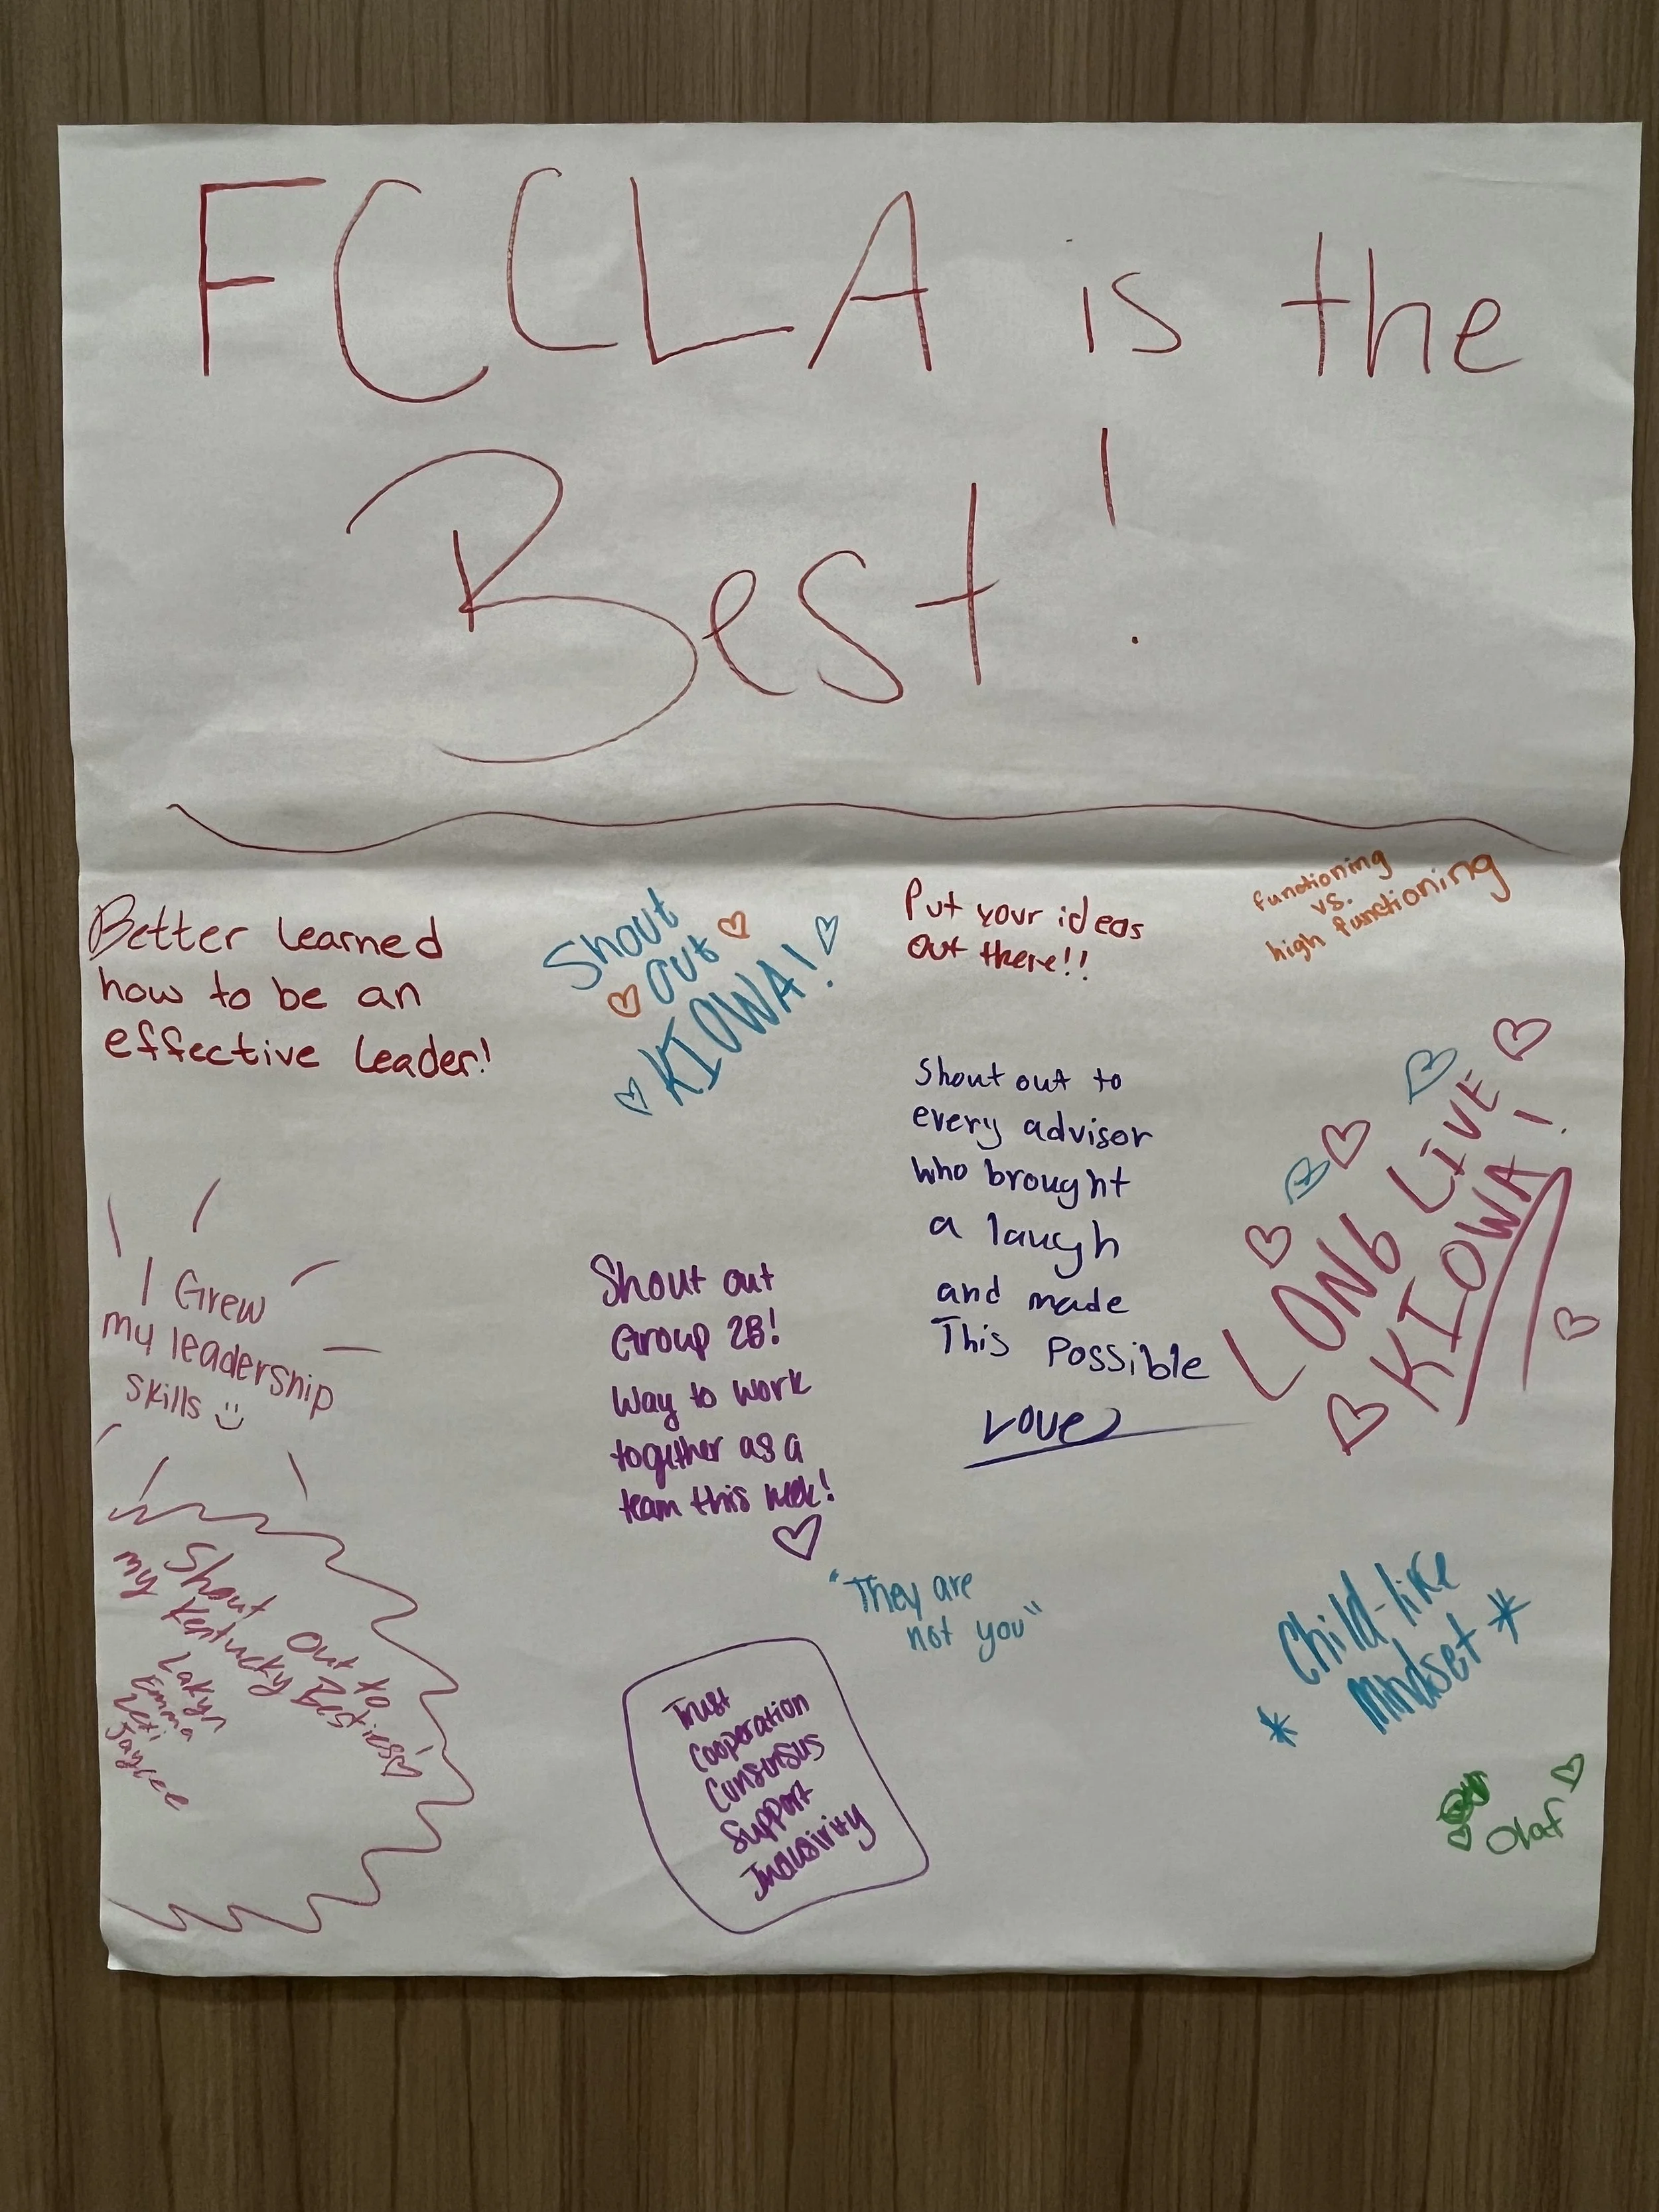 FCCLA is the
Best!
Better learned
how to be an
effective leader!
Shout
out
KIOWA!
Put your ideas
out there!!
functioning
vs.
high functioning
Shout out to
every advisor
who brought
a laugh
and made
This Possible
Love
LONG LIVE
KIOWA!
I Grew
my leadership
skills
Shout out
Group 2B!
Way to work
together as a
team this week!
Shout out to
my Kentucky Besties
Lakyn
Emma
Jaycee
"They are
not you"
Trust
Cooperation
Consensus
Support
Child-like
Mindset
Olaf